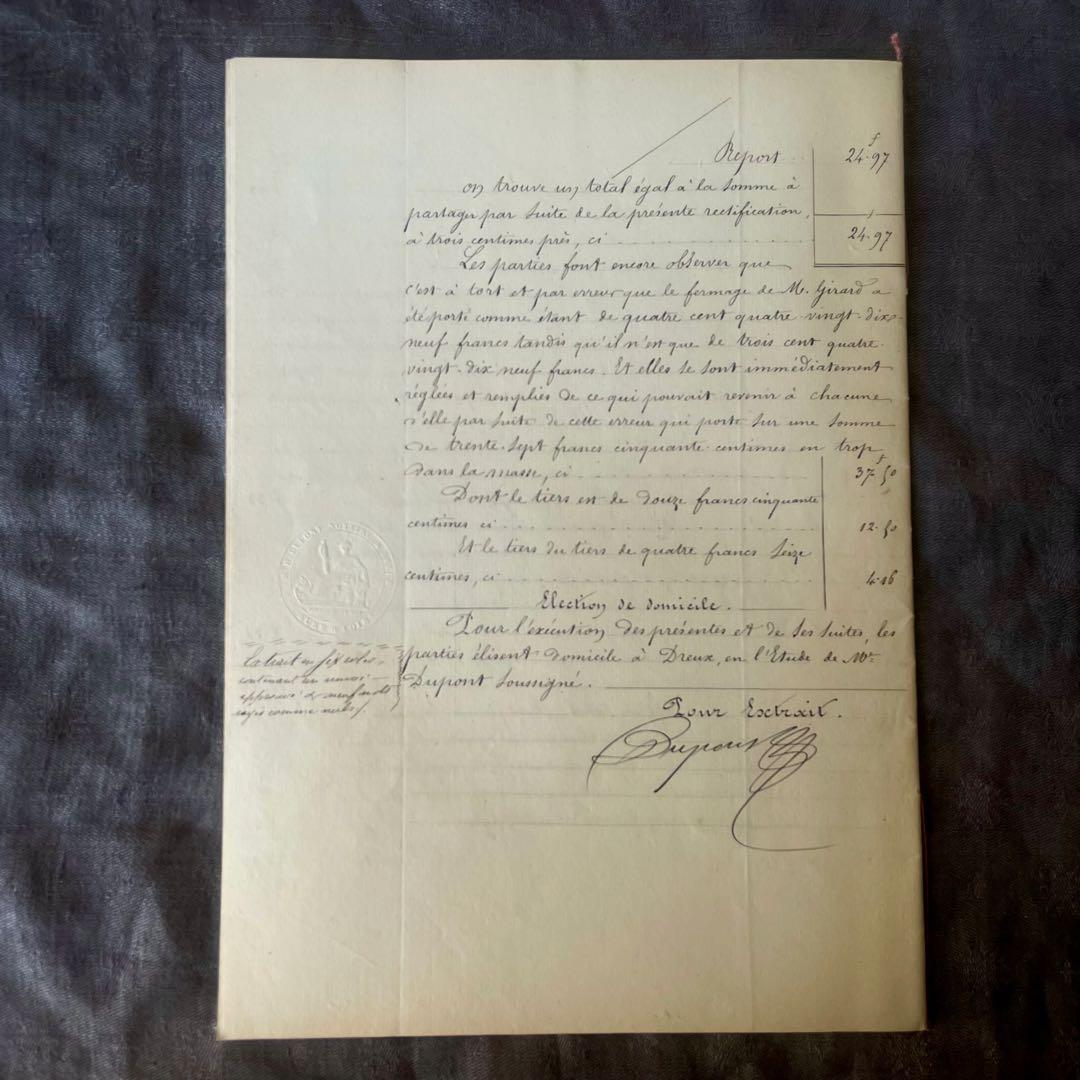 Report 24f.97
on trouve un total égal à la somme à
partager par suite de la présente rectification,
à trois centimes près, ci 24.97
Les parties font encore observer que
c'est à tort et par erreur que le fermage de M. Girard a
été porté comme étant de quatre cent quatre-vingt-dix-
neuf francs tandis qu'il n'est que de trois cent quatre-
vingt-dix neuf francs. Et elles se sont immédiatement
réglées et remplies de ce qui pouvait revenir à chacune
d'elle par suite de cette erreur qui porte sur une somme
de trente-sept francs cinquante centimes en trop
dans la masse, ci 37f.50
Dont le tiers est de douze francs cinquante
centimes ci 12.50
Et le tiers du tiers de quatre francs seize
centimes, ci 4.16
Election de domicile.
Pour l'exécution des présentes et de ses suites, les
parties élisent domicile à Dreux, en l'Etude de Me
Dupont soussigné.
Extrait en six rôles
contenant un renvoi
approuvé & neuf mots
rayés comme nuls/.
Pour Extrait.
Dupont